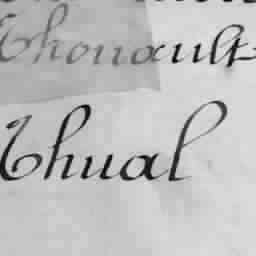 Thonault
Thual